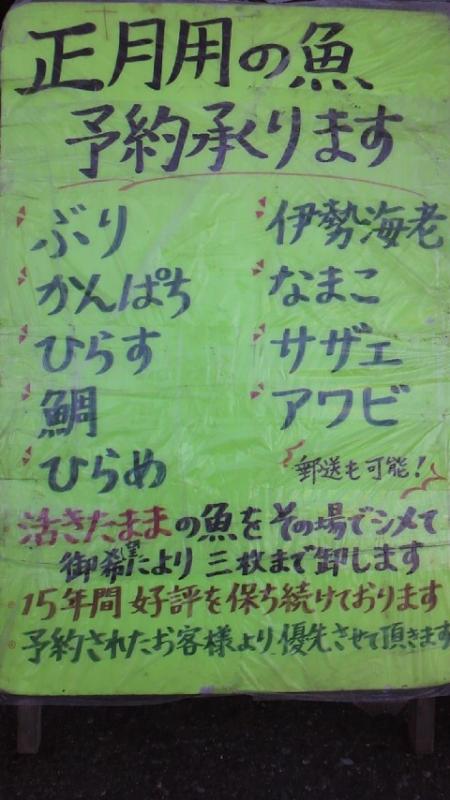 正月用の魚
予約承ります
ぶり
かんぱち
ひらす
鯛
ひらめ
伊勢海老
なまこ
サザエ
アワビ
郵送も可能!
活きたままの魚をその場でシメて
御希望により三枚まで卸します
15年間好評を保ち続けております
予約されたお客様より優先させて頂きます